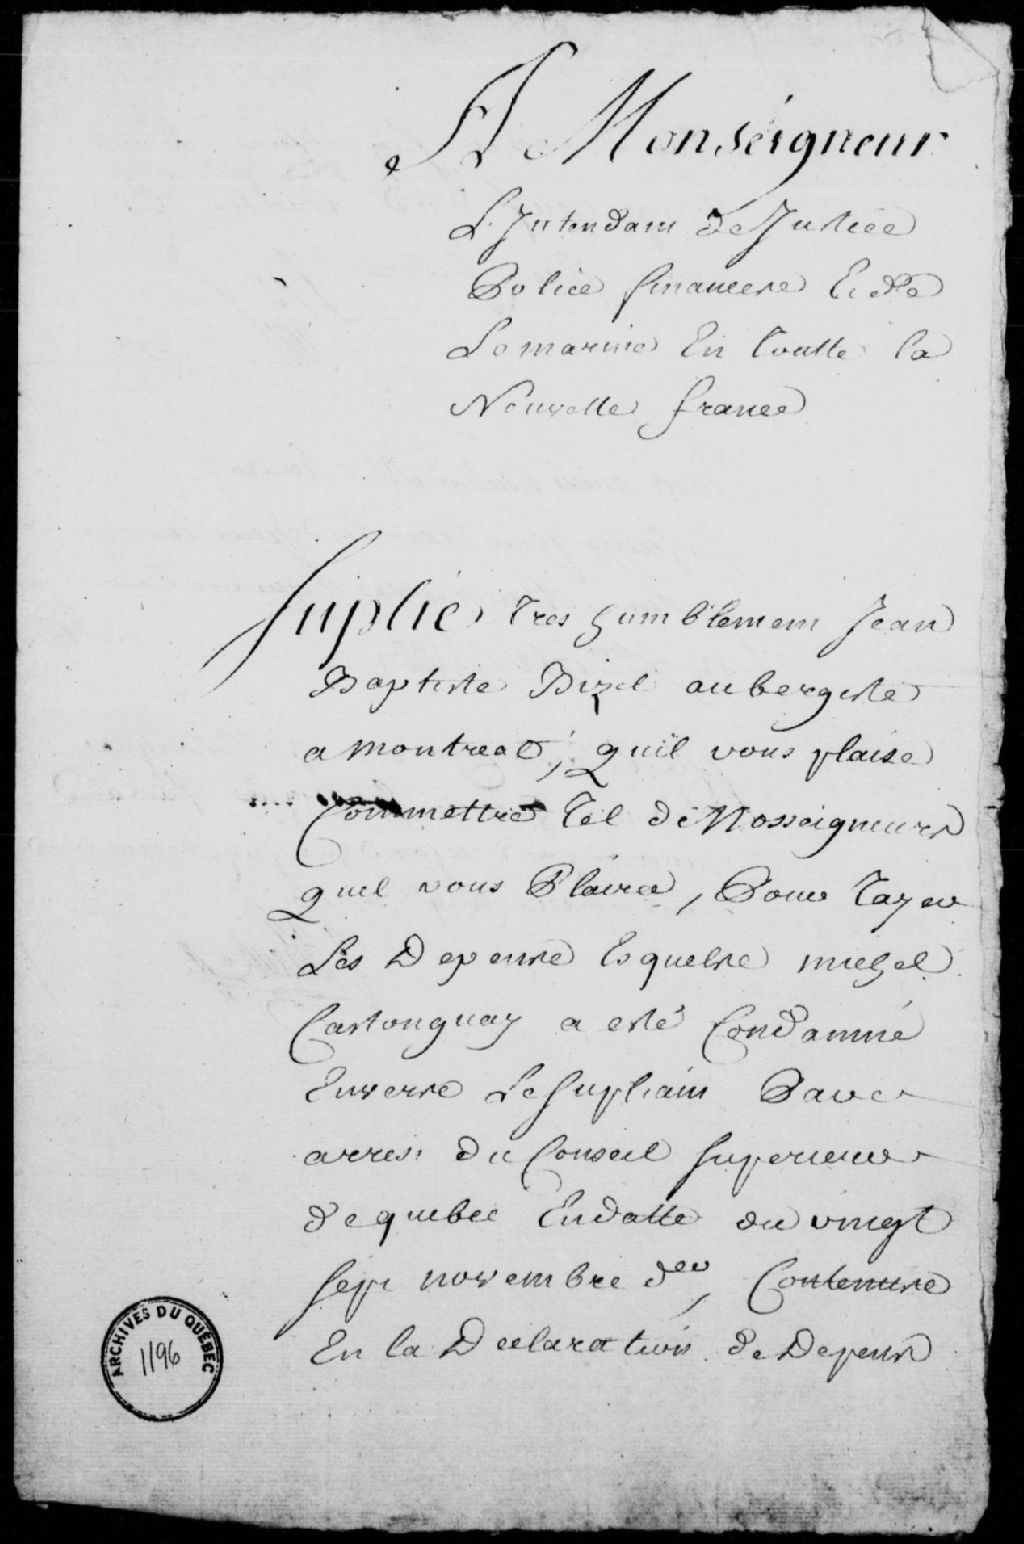 A Monseigneur
L'Intendant de Justice
Police finances Et de
La marine En toutte la
Nouvelle france
Suplie tres humblement Jean
Baptiste Bizet aubergiste
a montreal, quil vous plaise
Commettre tel de Nosseigneurs
quil vous Plaira, Pour taxer
Les Depense Esquelse michel
Castonguay a esté Condamné
Enverse Le Supliant Par
arrest du Conseil Superieur
de quebec En datte du vingt
sept novembre der, Contenuse
En la Declaration de Depens
ARCHIVES DU QUÉBEC
1196